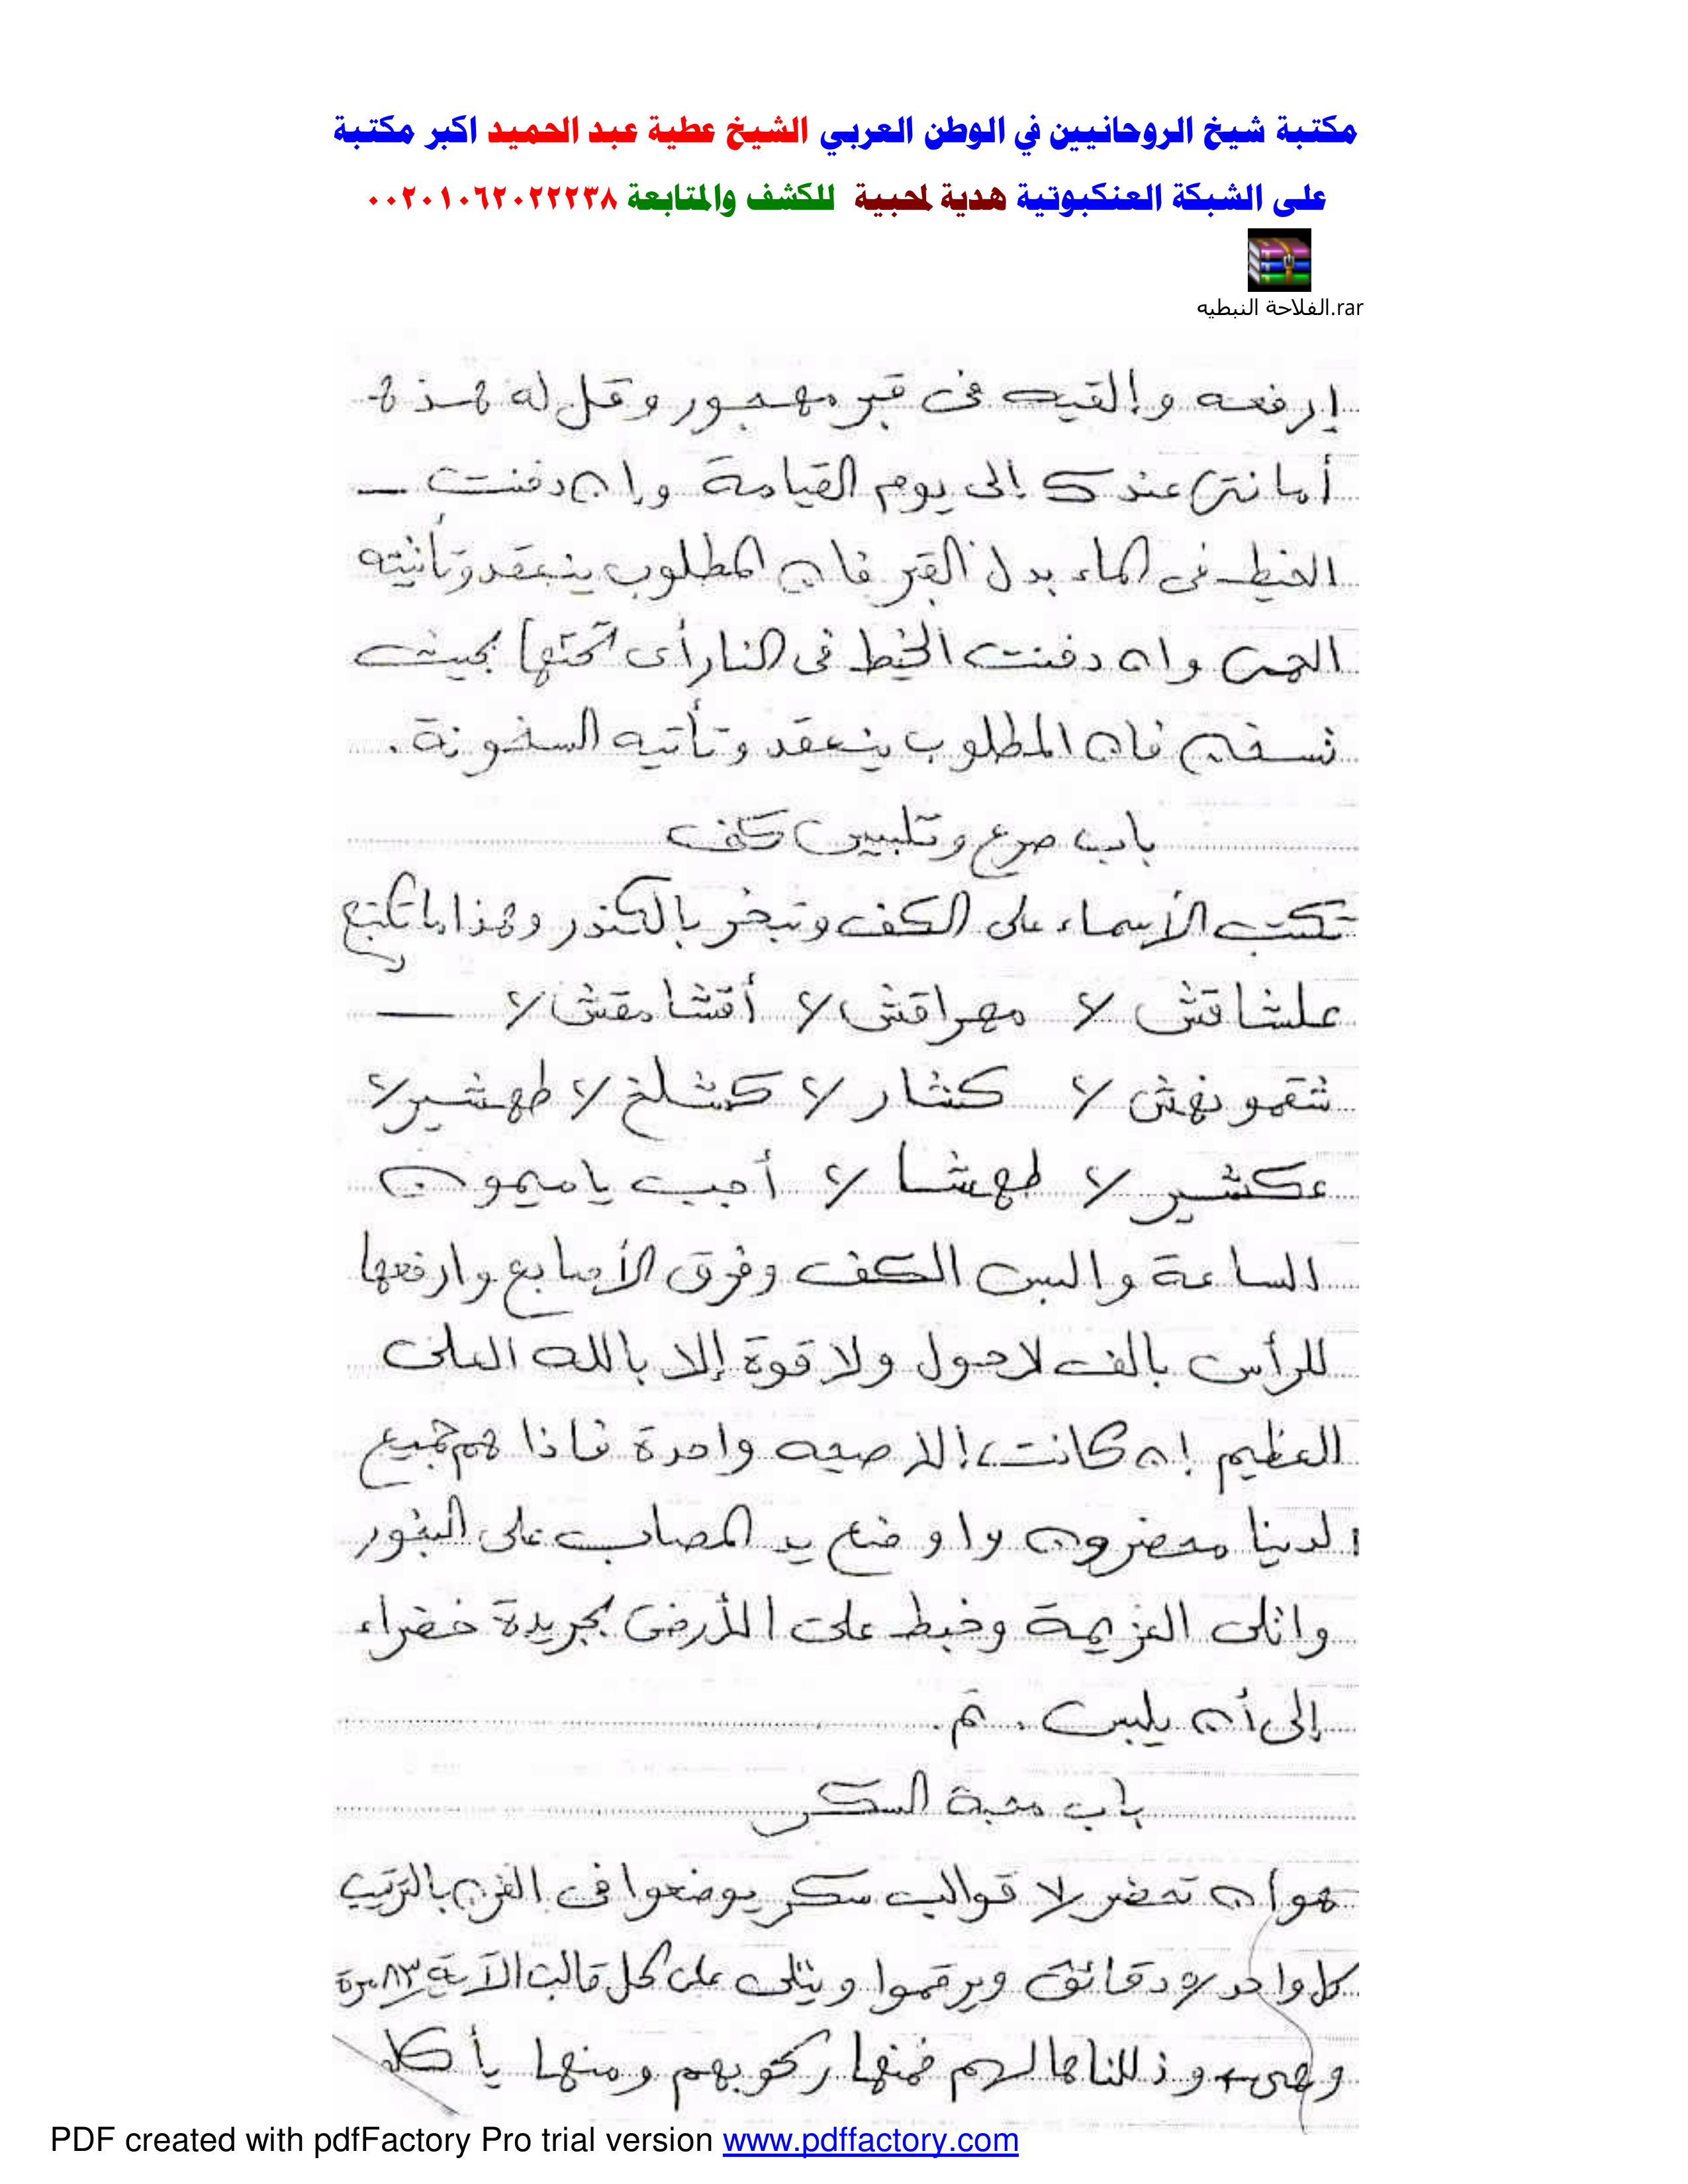 مكتبة شيخ الروحانيين في الوطن العربي الشيخ عطية عبد الحميد اكبر مكتبة
على الشبكة العنكبوتية هدية لمحبية للكشف والمتابعة ٠٠٢٠١٠٦٢٠٢٢٢٣٨
الفلاحة النبطيه.rar
إرفعه وإلقيه فى قبر مهجور وقل له هذه
أمانتى عندك إلى يوم القيامة وإن دفنت
الخيط فى الماء بدل القبر فان المطلوب ينعقد وتأتيته
الحمى وان دفنت الخيط فى النار أى تحتها بحيث
تسخن فان المطلوب ينعقد وتأتيه السخونة.
باب صرع وتلبيس كف
تكتب الأسماء على الكف وتبخر بالكندر وهذا ما تكتبع
علشاقش لا مهراقش لا أقشامقش لا
شقمونهش لا كشار لا كشلخ لا طهشير لا
عكشير لا طهشا لا أجب يا ميمون
الساعة والبس الكف وفرق الأصابع وارفعها
للرأس بالف لا حول ولا قوة إلا بالله العلى
العظيم إن كانت إلا صيحه واحدة فاذا هم جميع
لدينا محضرون واوضع يد المصاب على البخور
واتلى العزيمة وخبط على الأرض بجريدة خضراء
إلى أن يلبس. تم.
باب محبة السكر
هو أن تحضر لا قوالب سكر يوضعوا فى الفرن بالترتيب
كل واحد دقائق ويرقموا ويتلى على كل قالب الآية ٨٣ مرة
وهى وذللناها لهم فمنها ركوبهم ومنها يأكلو
PDF created with pdfFactory Pro trial version www.pdffactory.com